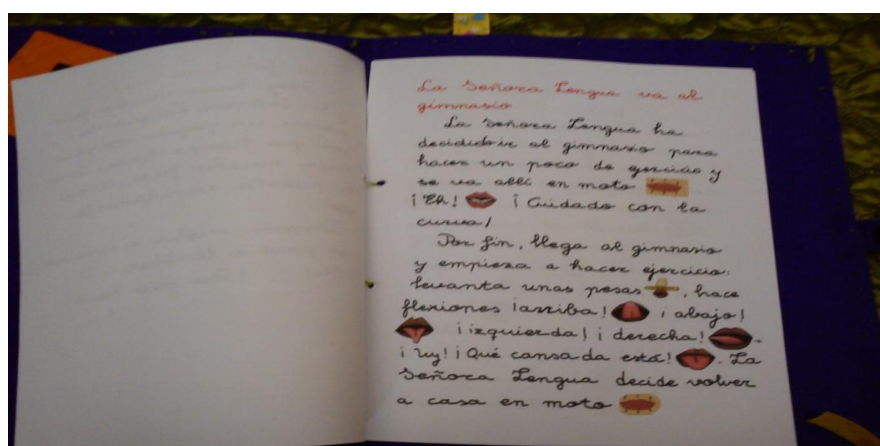 La Señora Lengua va al
gimnasio
La Señora Lengua ha
decidido ir al gimnasio para
hacer un poco de ejercicio y
se va allí en moto
¡Eh! ¡Cuidado con la
curva!
Por fin, llega al gimnasio
y empieza a hacer ejercicio:
levanta unas pesas, hace
flexiones ¡arriba! ¡abajo!
¡izquierda! ¡derecha!.
¡Uy! ¡Qué cansada está!. La
Señora Lengua decide volver
a casa en moto